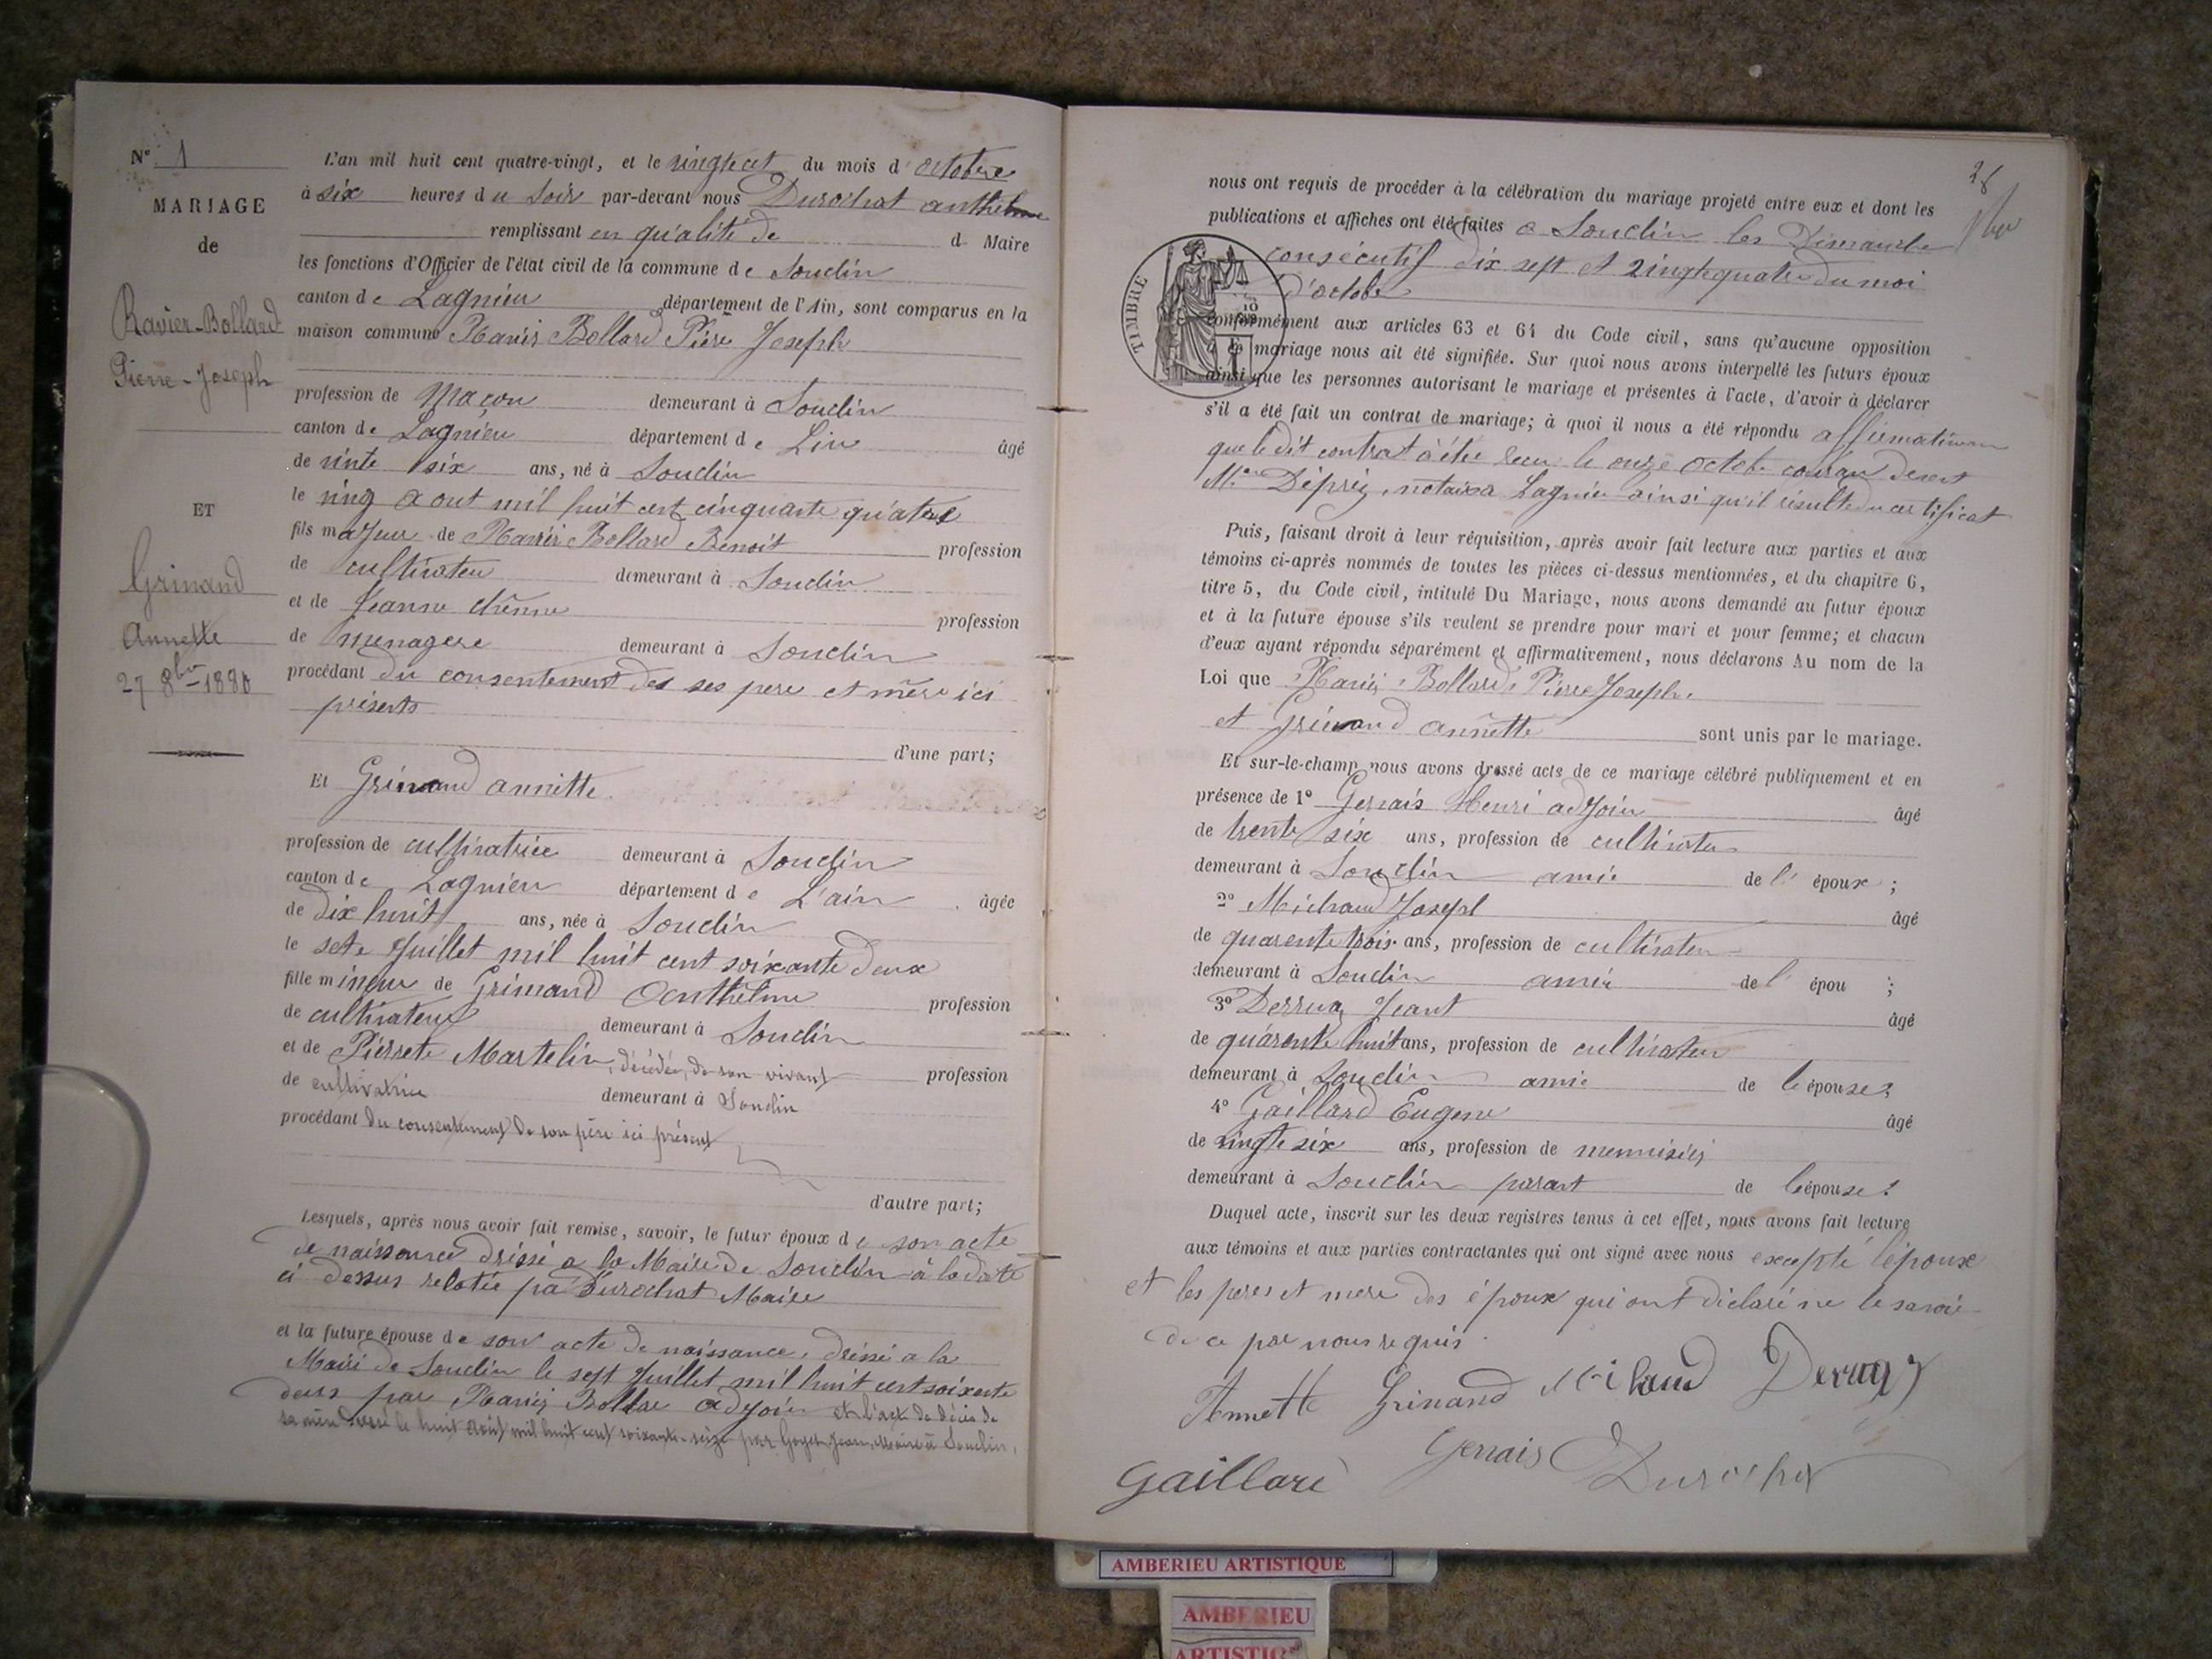 N° 1
MARIAGE
de
Ravier-Bollard
Pierre-Joseph
ET
Grinand
Annette
27 8bre 1880
L'an mil huit cent quatre-vingt, et le vingtcet du mois d' octobre
à six heures du soir par-devant nous Durochat anthelme
remplissant en qualité de d Maire
les fonctions d'Officier de l'état civil de la commune de Souclin
canton de Lagnieu département de l'Ain, sont comparus en la
maison commune Ravier Bollard Piere Joseph
profession de Maçon demeurant à Souclin
canton de Lagnieu département de Lin âgé
de vinte six ans, né à Souclin
le ving aout mil huit cent cinquante quatre
fils majeur de Ravier Bollard Benoit profession
de cultivateu demeurant à Souclin
et de Jeanne chêne profession
de menagere demeurant à Souclin
procédant du consentement des ses pere et mère ici
présents
d'une part;
Et Grinand annette
profession de cultivatrice demeurant à Souclin
canton de Lagnieu département de L'ain âgée
de dix huit ans, née à Souclin
le sete Juillet mil huit cent soixante deux
fille mineur de Grinand Anthelme profession
de cultivateur demeurant à Souclin
et de Pierrete Martelin, décédée, de son vivant profession
de cultivatrice demeurant à Souclin
procédant du consentement de son père ici présent
d'autre part;
Lesquels, après nous avoir fait remise, savoir, le futur époux de son acte
de naissance dréssé a la Mairie de Souclin à la date
ci dessus relatée pa Durochat Maire
et la future épouse de son acte de naissance, dréssé a la
Mairi de Souclin le sept Juillet mil huit cent soixante
deux par Ravier Bollar adjoin et l'acte de décès de
sa mère dressé le huit août mil huit cent soixante-seize par Goyet Jean, Maire à Souclin.
28
nous ont requis de procéder à la célébration du mariage projeté entre eux et dont les
publications et affiches ont été faites a Souclin les Dimanche
consécutif dix sept et vingtquatre du moi
d'octobre
TIMBRE
conformément aux articles 63 et 64 du Code civil, sans qu'aucune opposition
à ce mariage nous ait été signifiée. Sur quoi nous avons interpellé les futurs époux
ainsi que les personnes autorisant le mariage et présentes à l'acte, d'avoir à déclarer
s'il a été fait un contrat de mariage; à quoi il nous a été répondu affirmativem
que ledit contrat à été recu le onze octob couran devent
Me Dépréz, notaire a Lagnieu ainsi qu'il résulte du certificat
Puis, faisant droit à leur réquisition, après avoir fait lecture aux parties et aux
témoins ci-après nommés de toutes les pièces ci-dessus mentionnées, et du chapitre 6,
titre 5, du Code civil, intitulé Du Mariage, nous avons demandé au futur époux
et à la future épouse s'ils veulent se prendre pour mari et pour femme; et chacun
d'eux ayant répondu séparément et affirmativement, nous déclarons Au nom de la
Loi que Ravier Bollard Pierre Joseph
et Grinand annette sont unis par le mariage.
Et sur-le-champ nous avons dressé acte de ce mariage célébré publiquement et en
présence de 1° Gervais Henri adjoin âgé
de trente six ans, profession de cultivateu
demeurant à Souclin amie de l' époux ;
2° Michaud Josepl âgé
de quarente trois ans, profession de cultivateu
demeurant à Souclin amie de l' épou ;
3° Derruaz Jeant âgé
de quarente huit ans, profession de cultivateu
demeurant à Souclin amie de le épouse;
4° Gaillard Eugene âgé
de vingt six ans, profession de mennisiéj
demeurant à Souclin parant de le épouse;
Duquel acte, inscrit sur les deux registres tenus à cet effet, nous avons fait lecture
aux témoins et aux parties contractantes qui ont signé avec nous excepté lépoux
et les peres et mere des époux qui ont diclaré ne le savoir
de ce par nous requis.
Annette Grinand Michaud Derruaz
Gaillard Gervais Durochat
AMBERIEU ARTISTIQUE
AMBERIEU
ARTISTIQUE